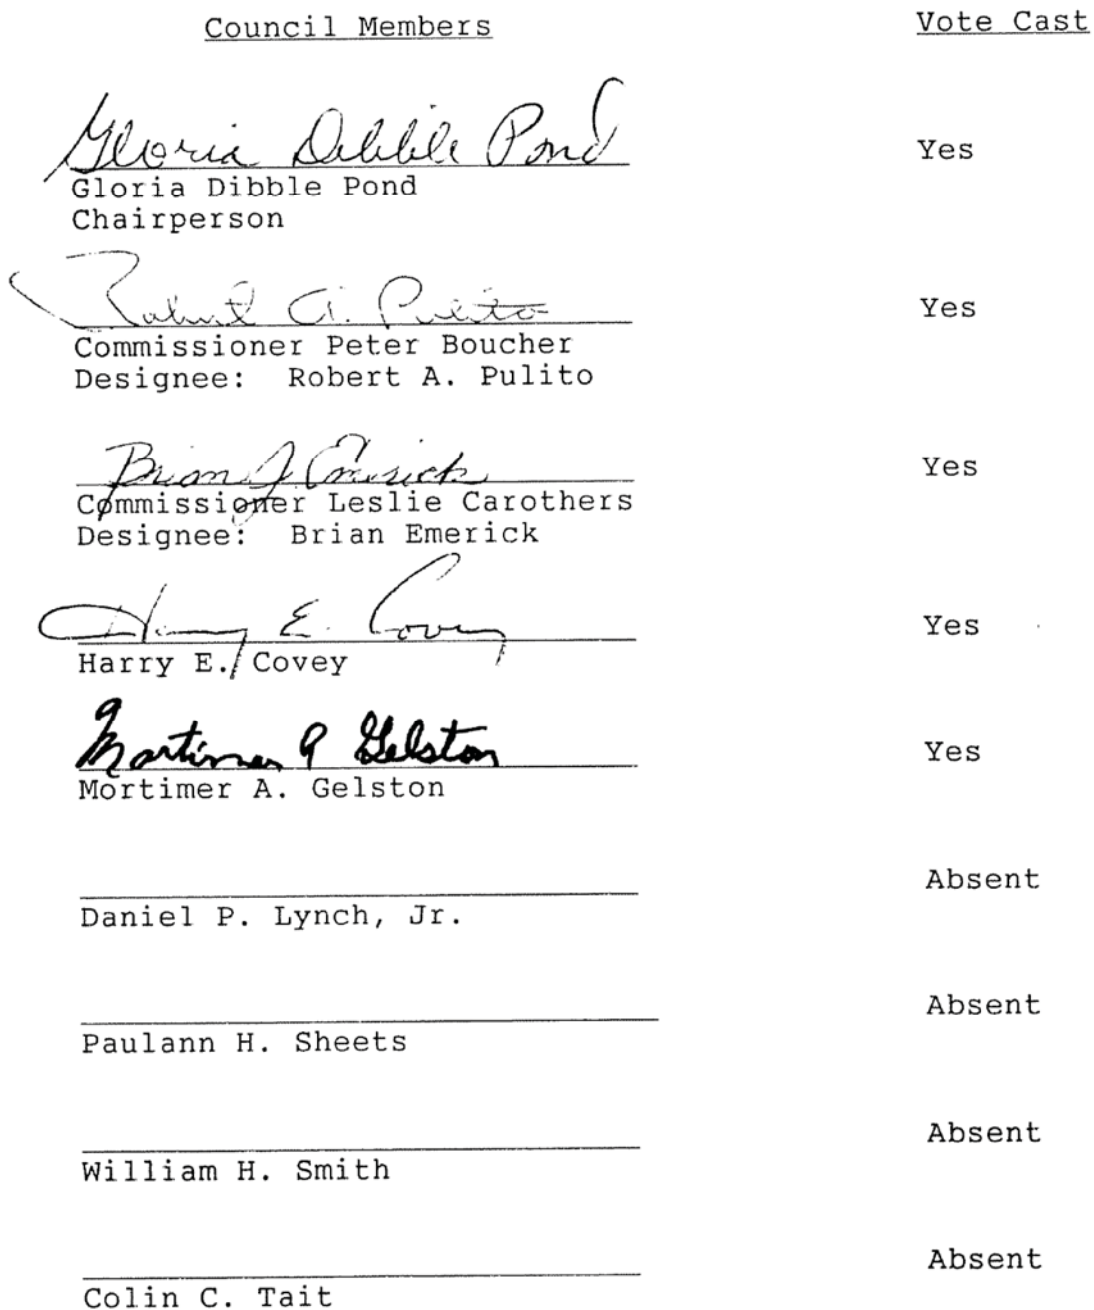 Council Members Vote Cast
Gloria Dibble Pond Yes
Gloria Dibble Pond
Chairperson
Robert A. Pulito Yes
Commissioner Peter Boucher
Designee: Robert A. Pulito
Brian J. Emerick Yes
Commissioner Leslie Carothers
Designee: Brian Emerick
Harry E. Covey Yes
Harry E. Covey
Mortimer A Gelston Yes
Mortimer A. Gelston
Absent
Daniel P. Lynch, Jr.
Absent
Paulann H. Sheets
Absent
William H. Smith
Absent
Colin C. Tait